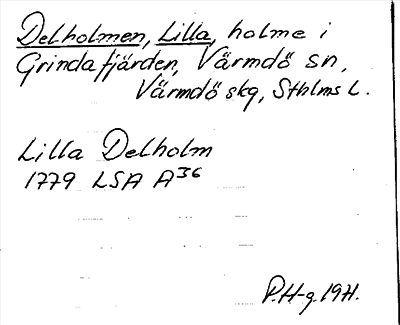 Delholmen, Lilla, holme i
Grindafjärden, Värmdö sn,
Värmdö skg, Sthlms L.
Lilla Delholm
1779 LSA A36
P.H-g. 1971.